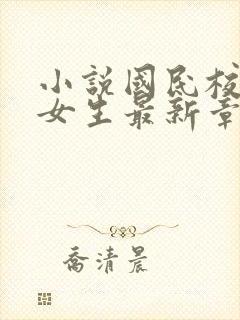 小說國民校
女生最新章
喬清晨